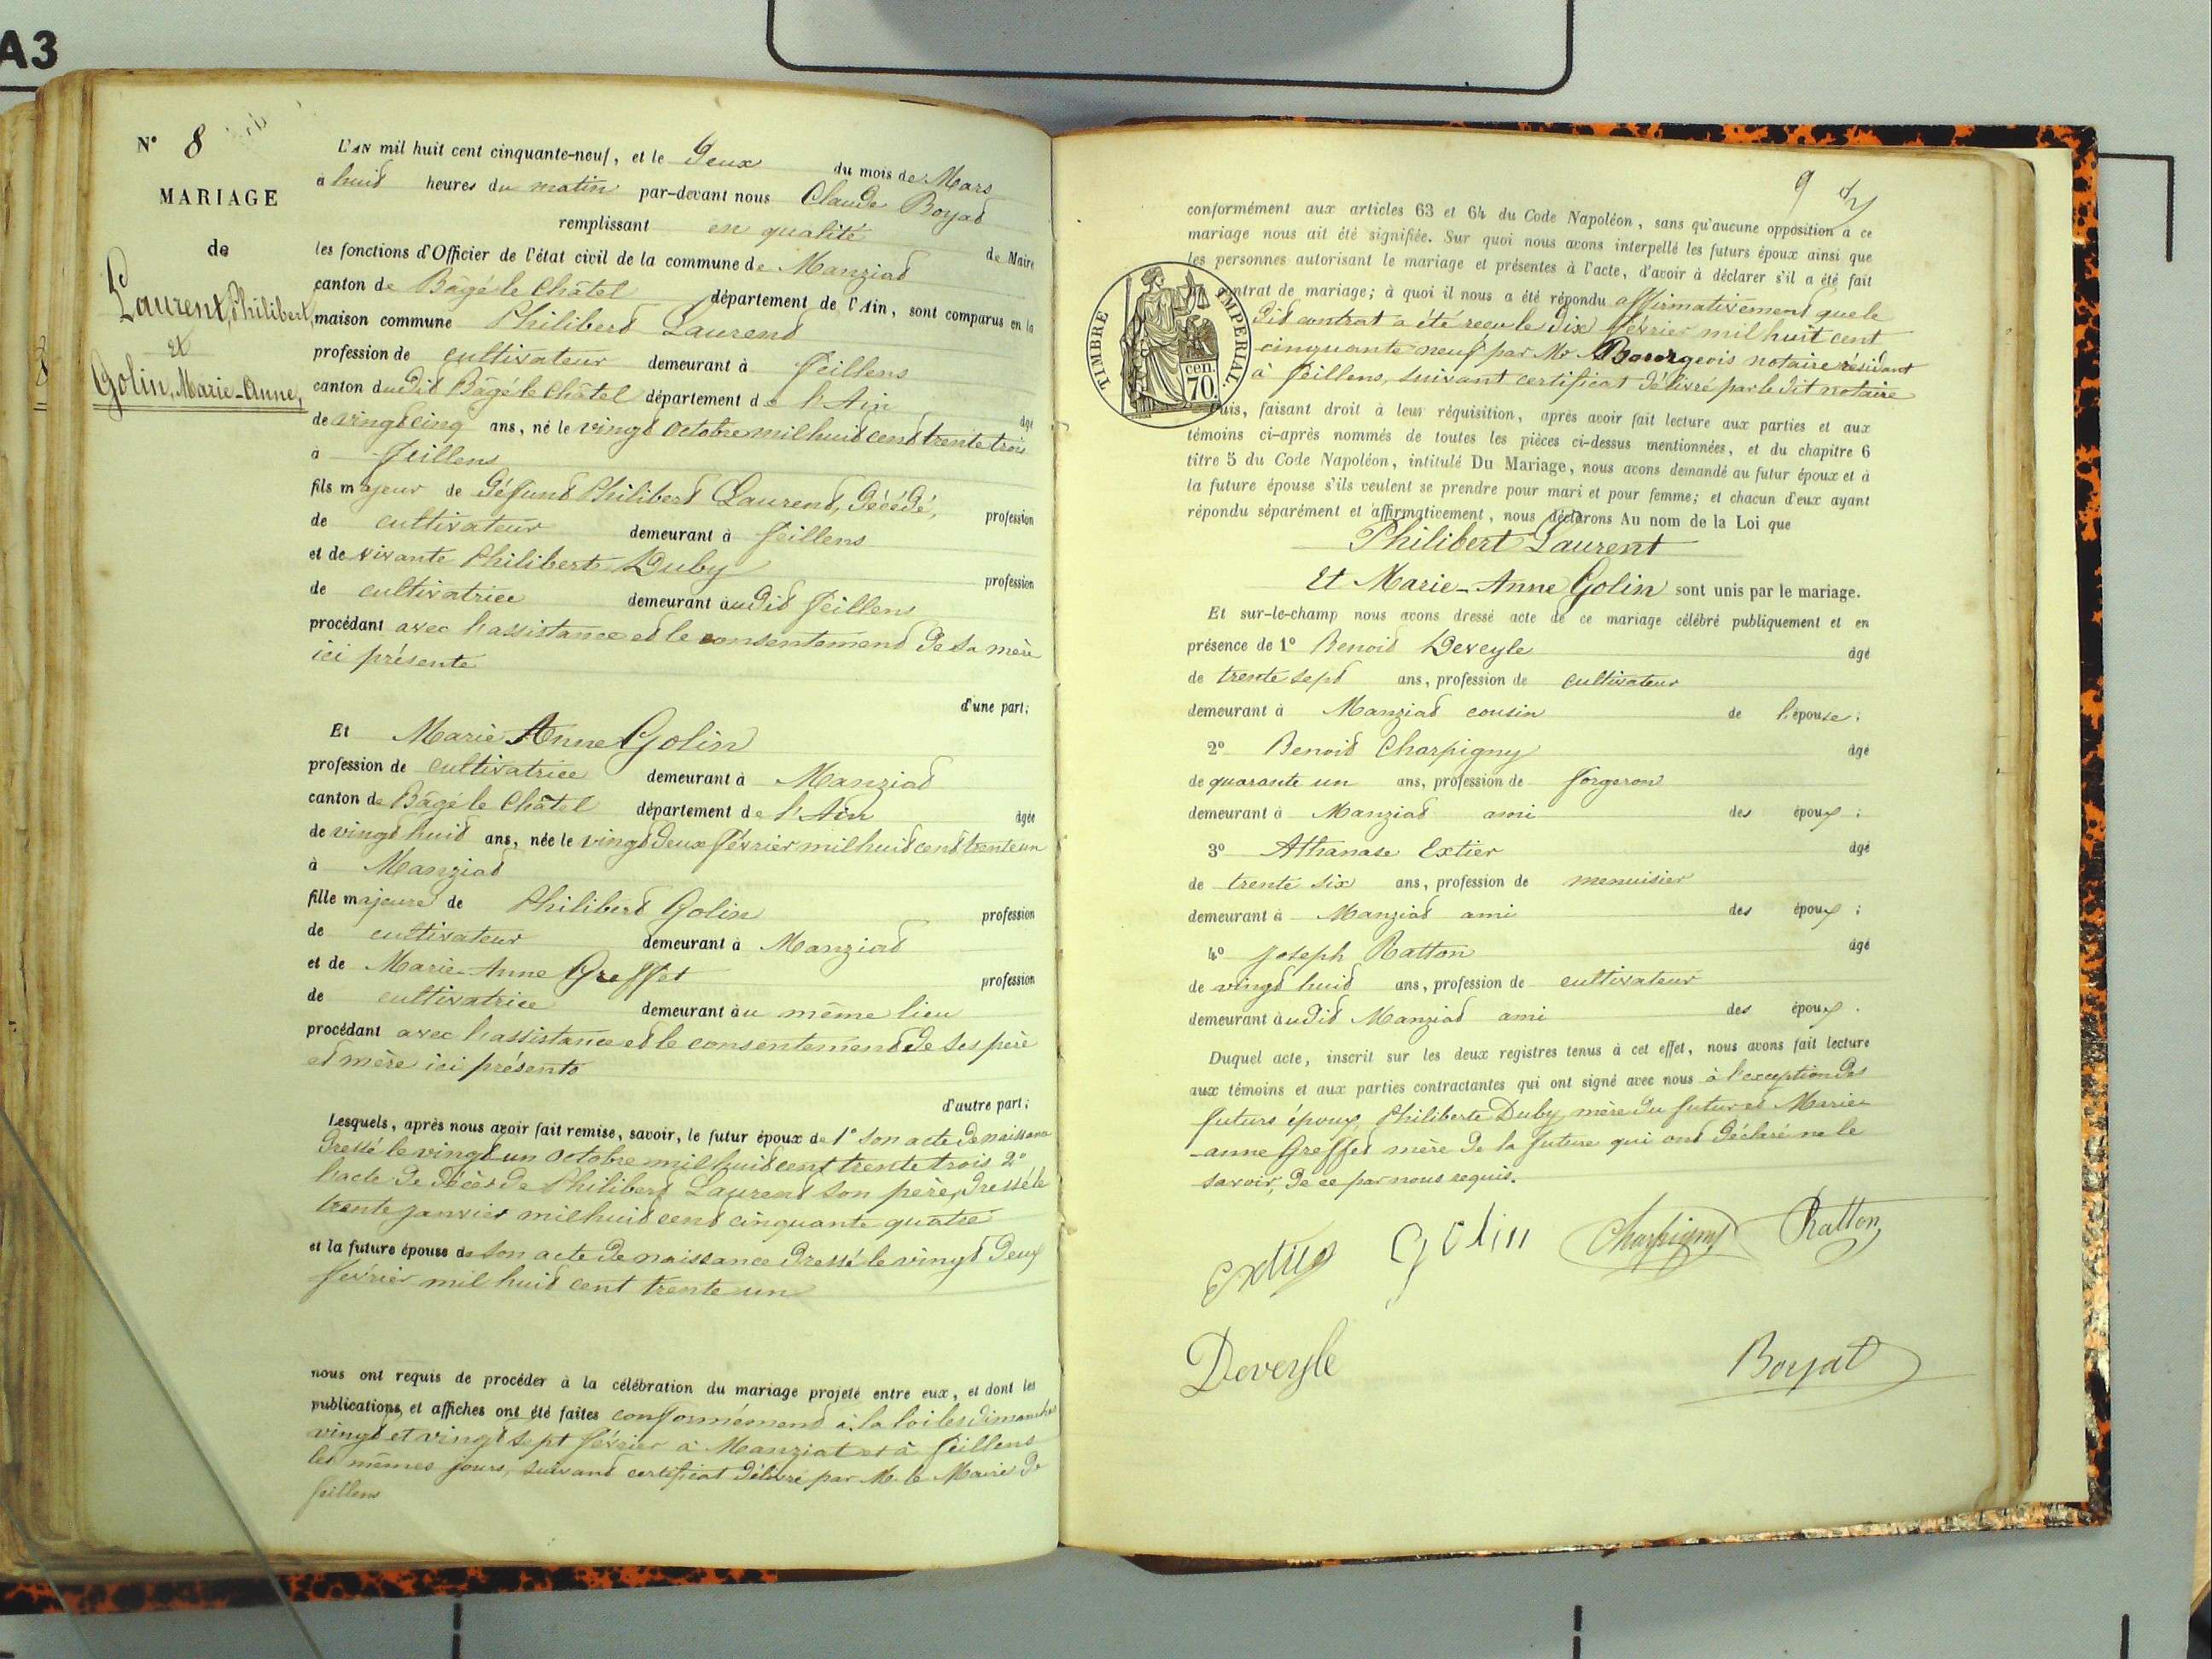 A3
N° 8
MARIAGE
de
Laurent, Philibert,
et
Golin, Marie-Anne,
8
L'AN mil huit cent cinquante-neuf, et le Deux du mois de Mars
à huit heures du matin par-devant nous Claude Boyat
remplissant en qualité de Maire
les fonctions d'Officier de l'état civil de la commune de Manziat
canton de Bâgé le Châtel département de l'Ain, sont comparus en la
maison commune Philibert Laurent
profession de cultivateur demeurant à Feillens
canton dudit Bâgé le Châtel département de l'Ain âgé
de vingt cinq ans, né le vingt octobre mil huit cent trente trois
à Feillens
fils majeur de défunt Philibert Laurent, décédé, profession
de cultivateur demeurant à Feillens
et de vivante Philiberte Duby profession
de cultivatrice demeurant audit Feillens
procédant avec l'assistance et le consentement de sa mère
ici présente
d'une part;
Et Marie Anne Golin
profession de cultivatrice demeurant à Manziat
canton de Bâgé le Châtel département de l'Ain âgée
de vingt huit ans, née le vingt deux février mil huit cent trente un
à Manziat
fille majeure de Philibert Golin profession
de cultivateur demeurant à Manziat
et de Marie-Anne Greffet profession
de cultivatrice demeurant au même lieu
procédant avec l'assistance et le consentement de ses père
et mère ici présents
d'autre part;
Lesquels, après nous avoir fait remise, savoir, le futur époux de 1° son acte de naissance
dressé le vingt un octobre mil huit cent trente trois 2°
l'acte de décès de Philibert Laurent son père, dressé le
trente janvier mil huit cent cinquante quatre
et la future épouse de son acte de naissance dressé le vingt deux
février mil huit cent trente un
nous ont requis de procéder à la célébration du mariage projeté entre eux, et dont les
publications et affiches ont été faites conformément à la loi les dimanches
vingt et vingt sept février à Manziat et à Feillens
les mêmes jours, suivant certificat délivré par M. le Maire de
Feillens
9
conformément aux articles 63 et 64 du Code Napoléon, sans qu'aucune opposition à ce
mariage nous ait été signifiée. Sur quoi nous avons interpellé les futurs époux ainsi que
les personnes autorisant le mariage et présentes à l'acte, d'avoir à déclarer s'il a été fait
contrat de mariage; à quoi il nous a été répondu affirmativement que le
dit contrat a été reçu le dix février mil huit cent
cinquante neuf par Mr Bourgeois notaire résidant
à Feillens, suivant certificat délivré par le dit notaire
TIMBRE IMPERIAL.
cen. 70.
Puis, faisant droit à leur réquisition, après avoir fait lecture aux parties et aux
témoins ci-après nommés de toutes les pièces ci-dessus mentionnées, et du chapitre 6
titre 5 du Code Napoléon, intitulé Du Mariage, nous avons demandé au futur époux et à
la future épouse s'ils veulent se prendre pour mari et pour femme; et chacun d'eux ayant
répondu séparément et affirmativement, nous déclarons Au nom de la Loi que
Philibert Laurent
Et Marie-Anne Golin sont unis par le mariage.
Et sur-le-champ nous avons dressé acte de ce mariage célébré publiquement et en
présence de 1° Benoit Deveyle âgé
de trente sept ans, profession de cultivateur
demeurant à Manziat cousin de l'épouse;
2° Benoit Charpigny âgé
de quarante un ans, profession de forgeron
demeurant à Manziat ami des époux;
3° Athanase Extier âgé
de trente six ans, profession de menuisier
demeurant à Manziat ami des époux;
4° Joseph Ratton âgé
de vingt huit ans, profession de cultivateur
demeurant audit Manziat ami des époux.
Duquel acte, inscrit sur les deux registres tenus à cet effet, nous avons fait lecture
aux témoins et aux parties contractantes qui ont signé avec nous à l'exception des
futurs époux, Philiberte Duby mère du futur et Marie
anne Greffet mère de la future qui ont déclaré ne le
savoir, de ce par nous requis.
Extier Golin Charpigny Ratton
Deveyle Boyat